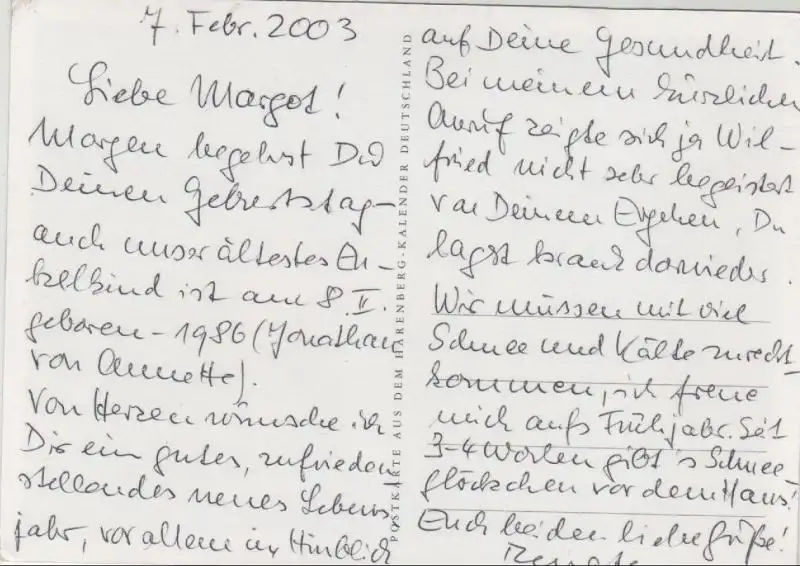 7. Febr. 2003
Liebe Margot!
Morgen begehst Du
Deinen Geburtstag –
auch unser ältestes En-
kelkind ist am 8. II.
geboren – 1986 (Jonathan
von Annette).
Von Herzen wünsche ich
Dir ein gutes, zufrieden
stellendes neues Lebens
jahr, vor allem im Hinblick
POSTKARTE AUS DEM HARENBERG-KALENDER DEUTSCHLAND
auf Deine Gesundheit.
Bei meinem kürzlichen
Anruf zeigte sich ja Wil-
fried nicht sehr begeistert
von Deinem Ergehen, Du
lagst krank darnieder.
Wir müssen mit viel
Schnee und Kälte zurecht-
kommen, ich freue
mich aufs Frühjahr. Seit
3-4 Wochen gibt's Schnee-
glöckchen vor dem Haus!
Euch beiden liebe Grüße!
Renate